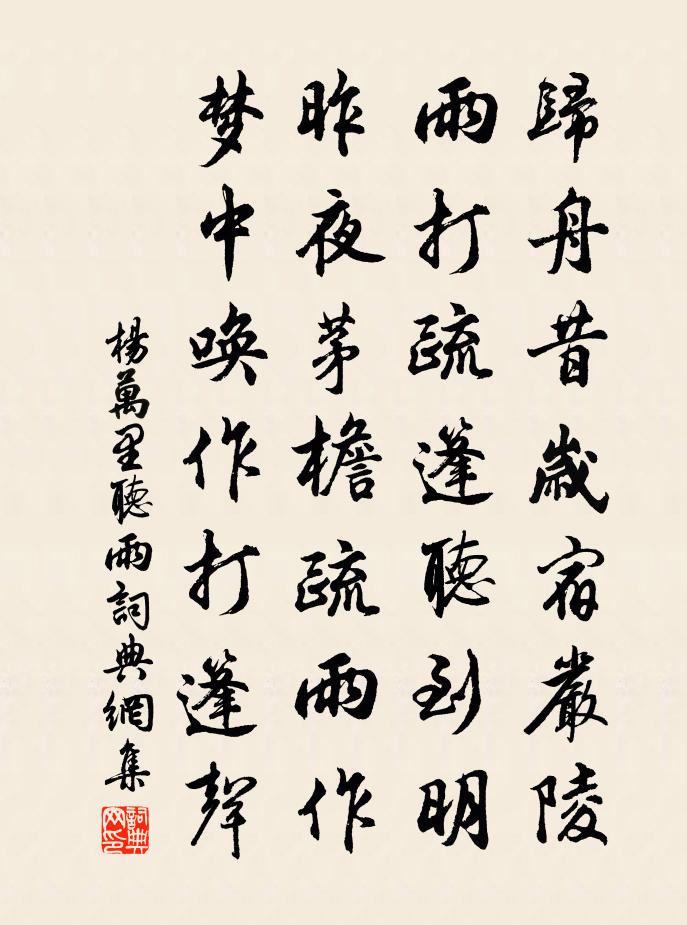 歸舟昔歲宿嚴陵
雨打疏蓬聽到明
昨夜茅檐疏雨作
梦中喚作打蓬聲
楊萬里聽雨詞典網集
詞典网印